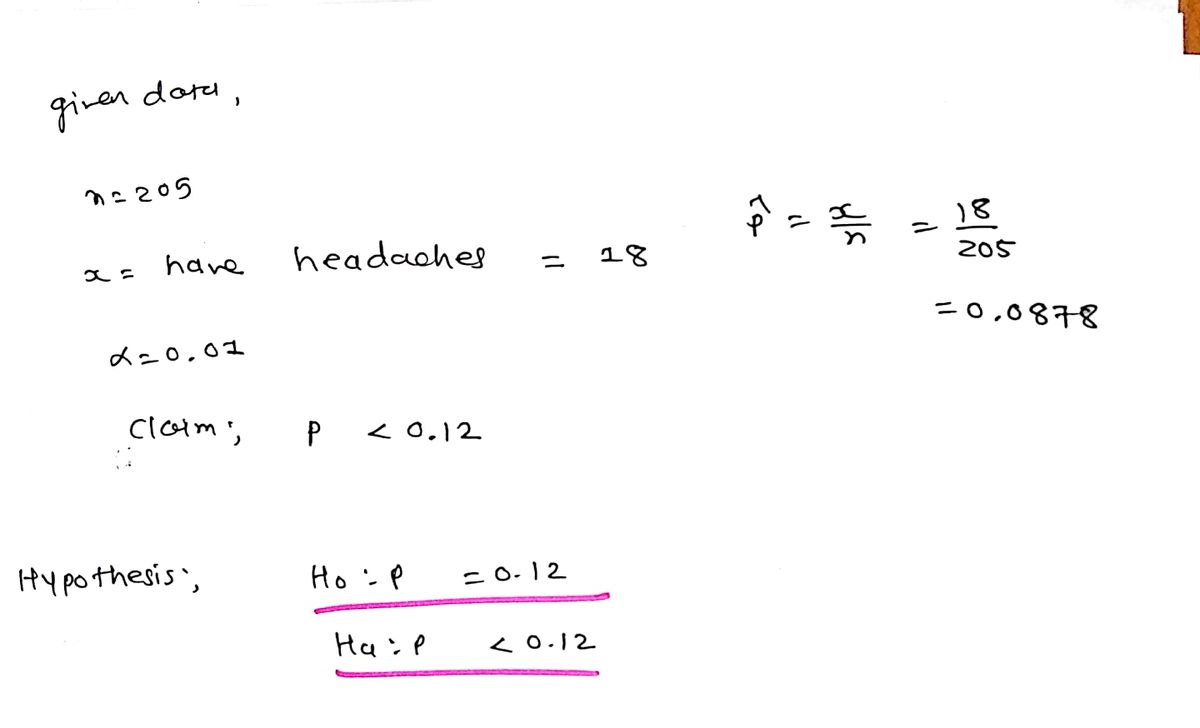 given data,
n = 205
x = have headaches = 18
p̂ = x/n = 18/205
= 0.0878
α = 0.01
Claim; p < 0.12
Hypothesis; H0 : p = 0.12
Ha : p < 0.12